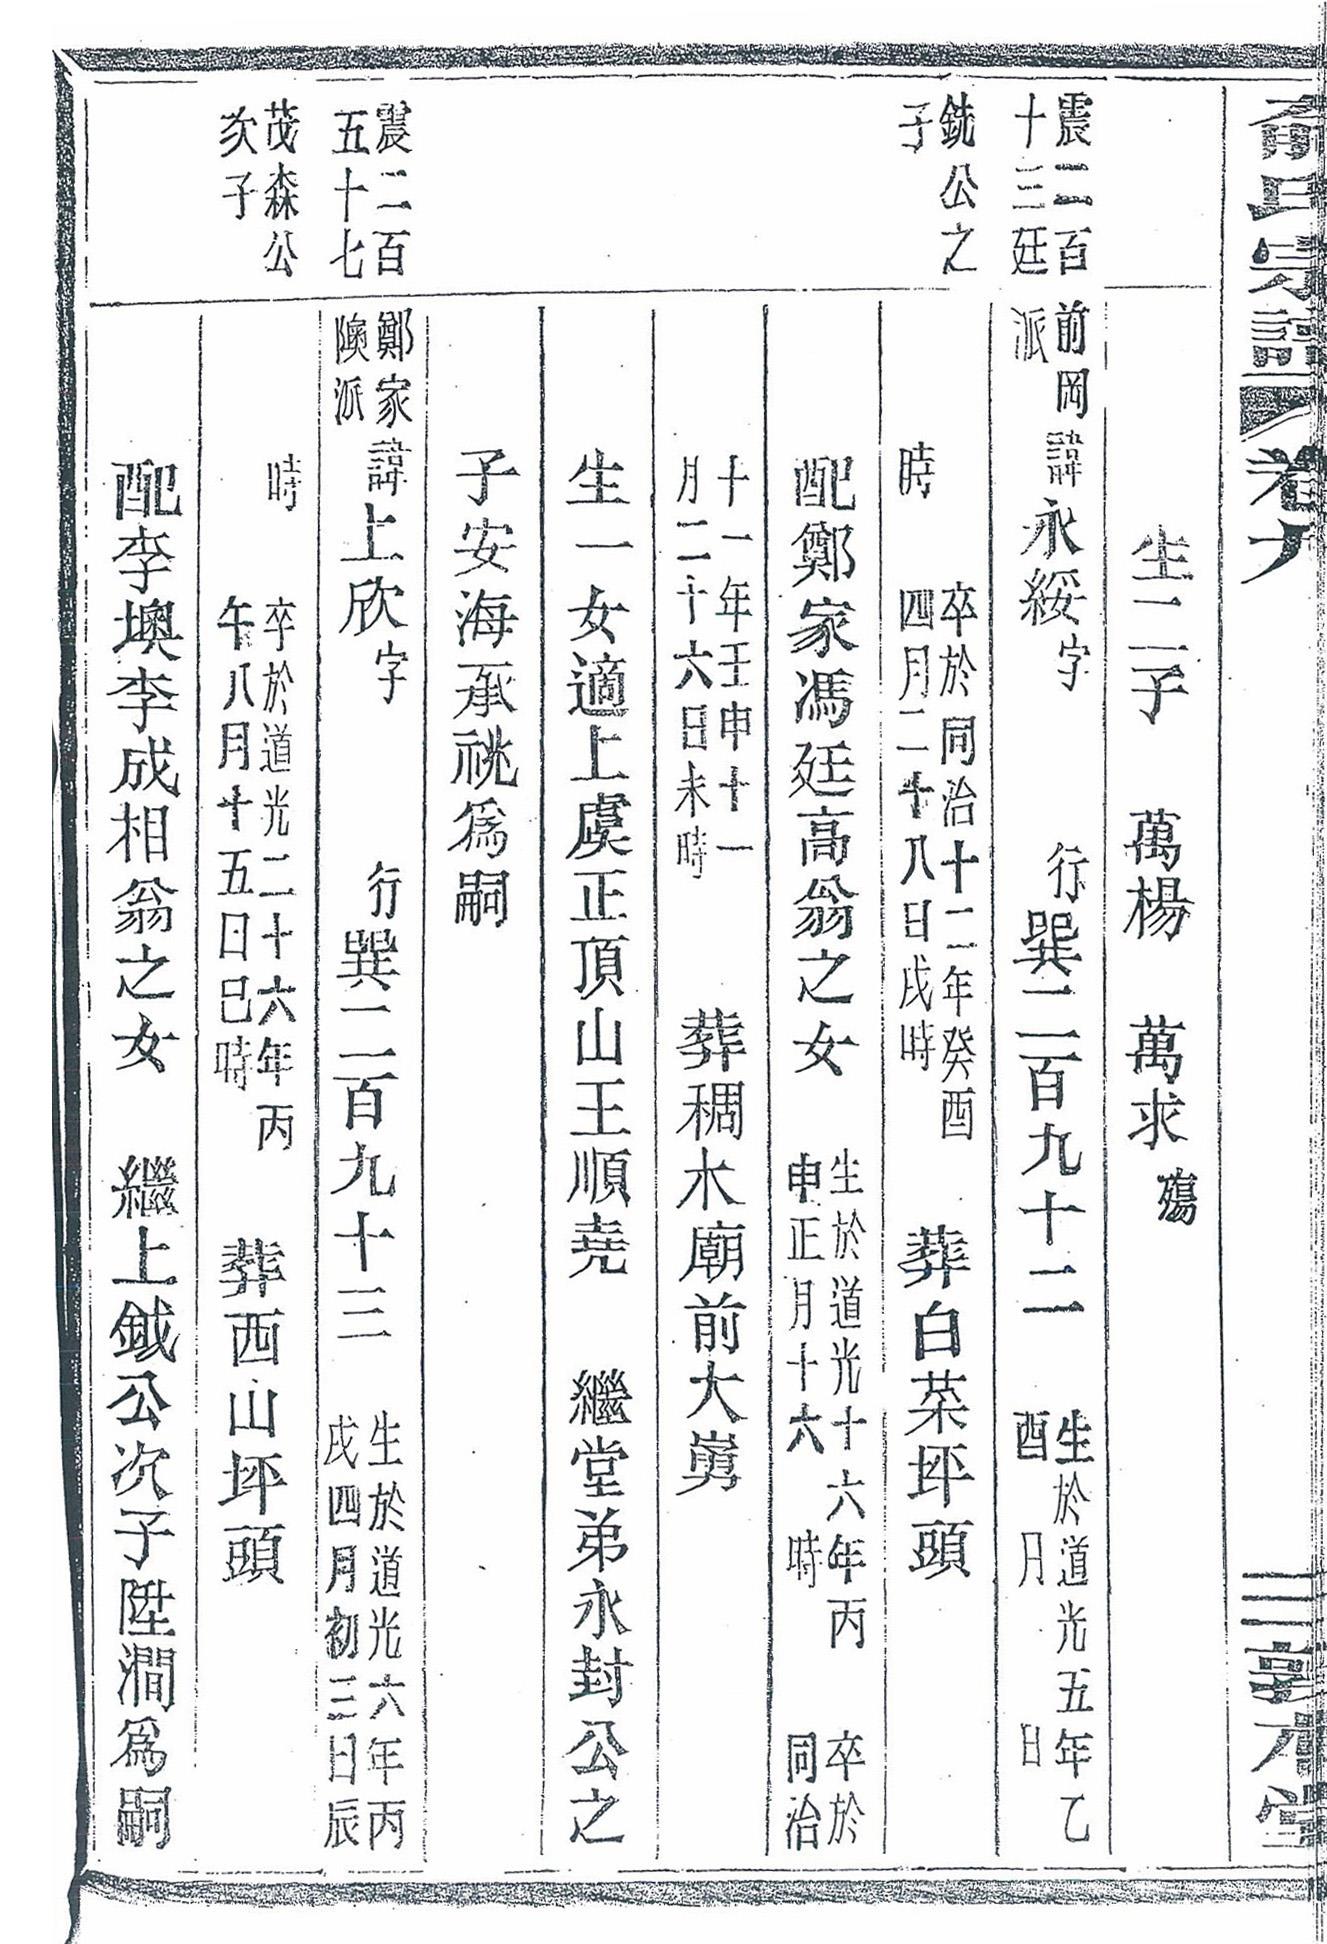 俞氏宗譜 卷九 三 敦本堂
生二子 萬楊 萬求 殤
震二百
十三廷
前岡
派
諱永綏字 行巽二百九十二
生於道光五年乙
酉 月 日
銑公之
子
時
卒於同治十二年癸酉
四月二十八日戌時
葬白菜坪頭
配鄭家馮廷高翁之女
生於道光十六年丙
申正月十六 時
卒於
同治
十一年壬申十一
月二十六日未時
葬稠木廟前大嶴
生一女適上虞正頂山王順堯 繼堂弟永封公之
子安海承祧爲嗣
震二百
五十七
鄭家
隩派
諱上欣字 行巽二百九十三
生於道光六年丙
戌四月初三日辰
茂森公
次子
時
卒於道光二十六年丙
午八月十五日巳時
葬西山坪頭
配李墺李成相翁之女 繼上鉞公次子陞澗爲嗣